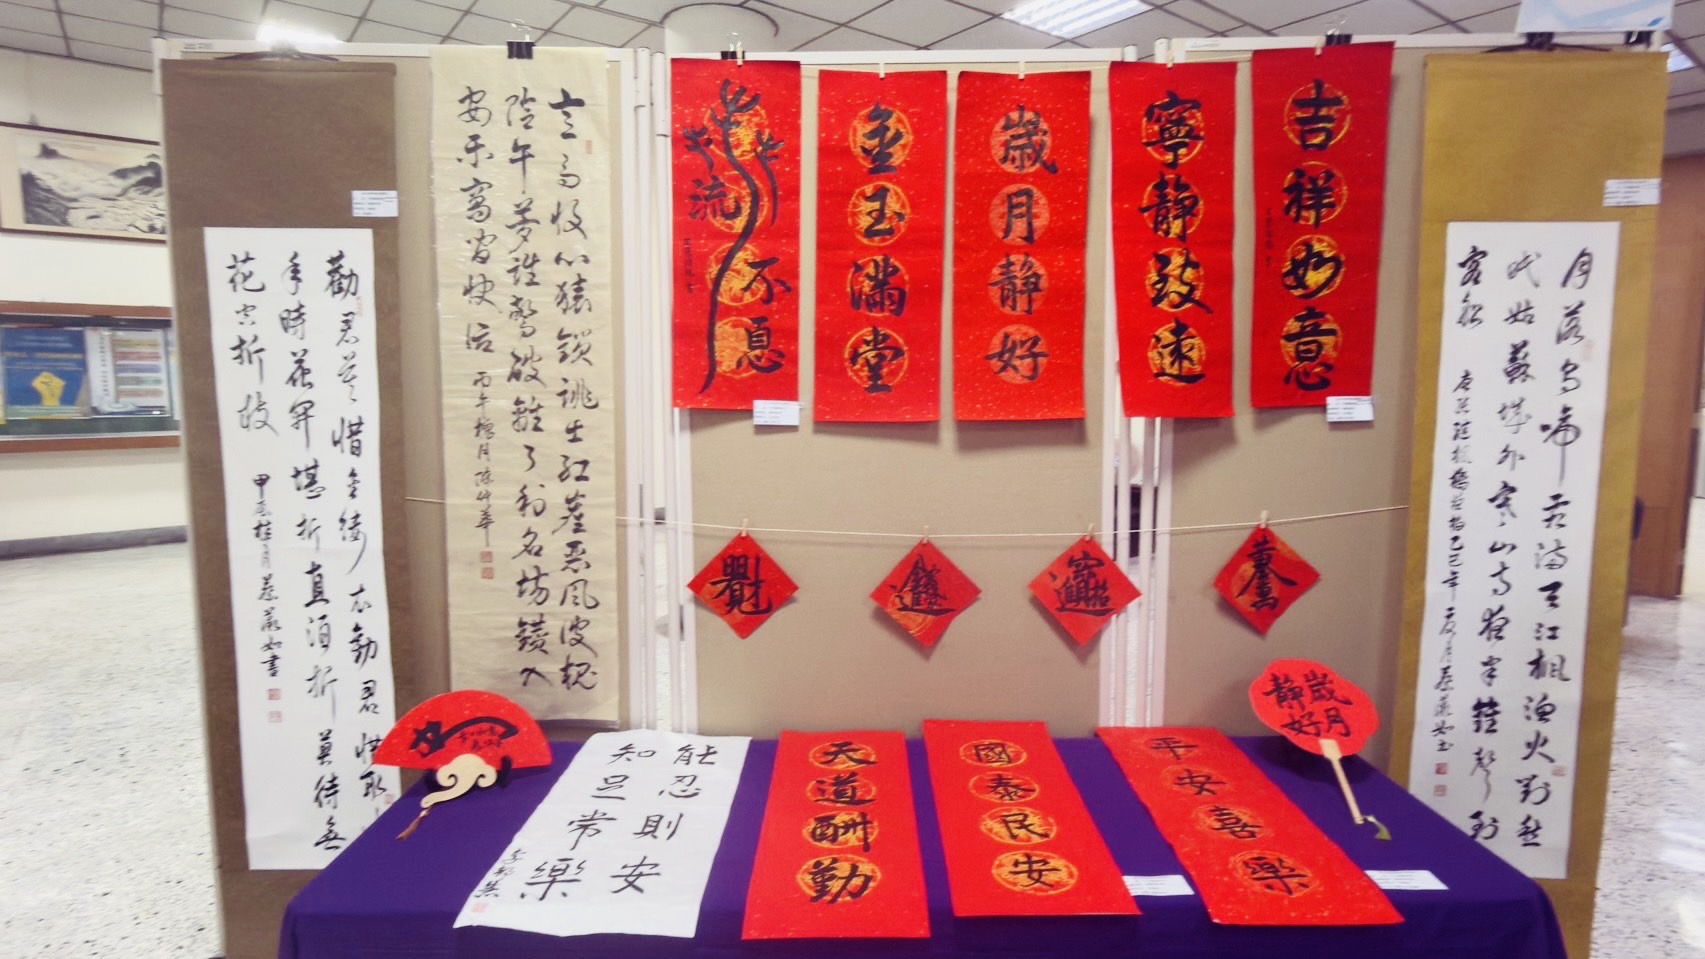 勸君莫惜金縷衣勸君惜取少
年時花開堪折直須折莫待無
花空折枝
甲辰桂月
意馬收心猿鎖跳出紅塵惡風波槐
陰午夢誰驚破離了利名場鑽入
安樂窩閒快活
川流不息
金玉滿堂
歲月靜好
寧靜致遠
吉祥如意
月落烏啼霜滿天江楓漁火對愁
眠姑蘇城外寒山寺夜半鐘聲到
客船
唐張繼楓橋夜泊乙巳年夏月
歲月靜好
能忍則安
知足常樂
天道酬勤
國泰民安
平安喜樂